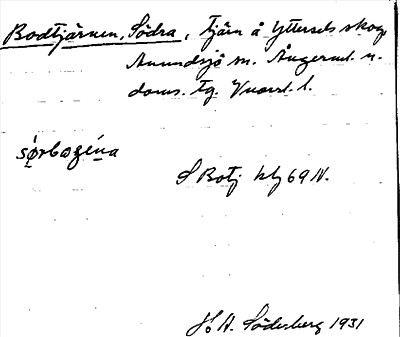 Bodtjärnen, Södra, tjärn å Yttersels skog,
Anundsjö sn. Ångerml. n.
doms. tg. Vnorrl. l.
sǿrbogéna
S Botj kbl 69 IV.
H. A. Söderberg 1931